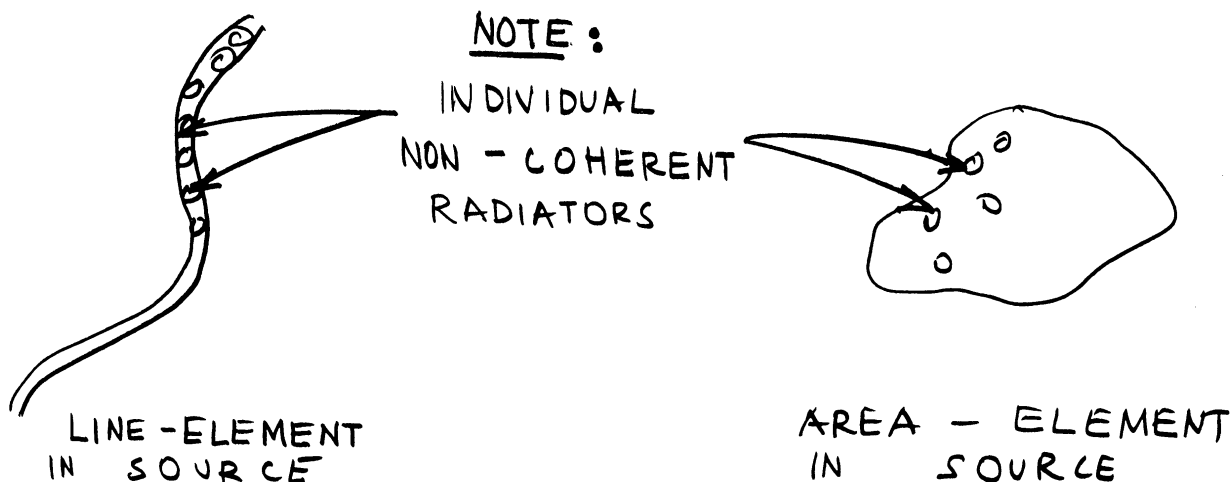 NOTE:
INDIVIDUAL
NON - COHERENT
RADIATORS
LINE-ELEMENT
IN SOURCE
AREA - ELEMENT
IN SOURCE